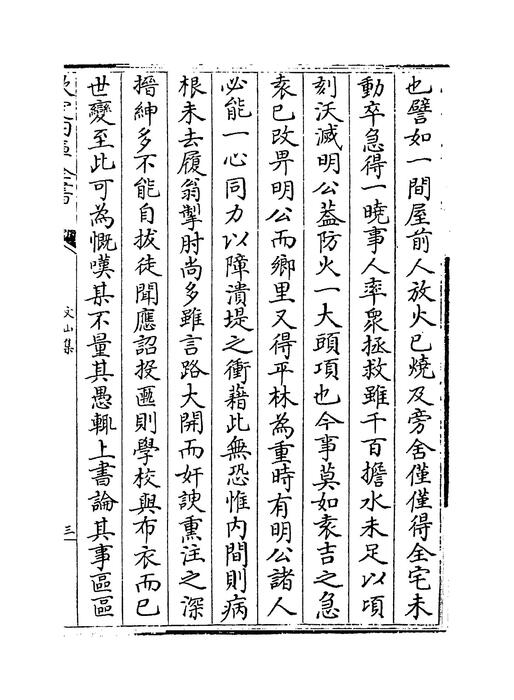 也譬如一間屋前人放火已燒及旁舍僅僅得全宅未
動卒急得一曉事人率衆拯救雖千百擔水未足以頃
刻沃滅明公葢防火一大頭項也今事莫如袁吉之急
袁已改畀明公而鄉里又得平林為重時有明公諸人
必能一心同力以障潰堤之衝藉此無恐惟内間則病
根未去履翁掣肘尚多雖言路大開而奸諛熏注之深
搢紳多不能自拔徒聞應詔投匭則學校與布衣而已
世變至此可為慨嘆某不量其愚輒上書論其事區區
文山集
三